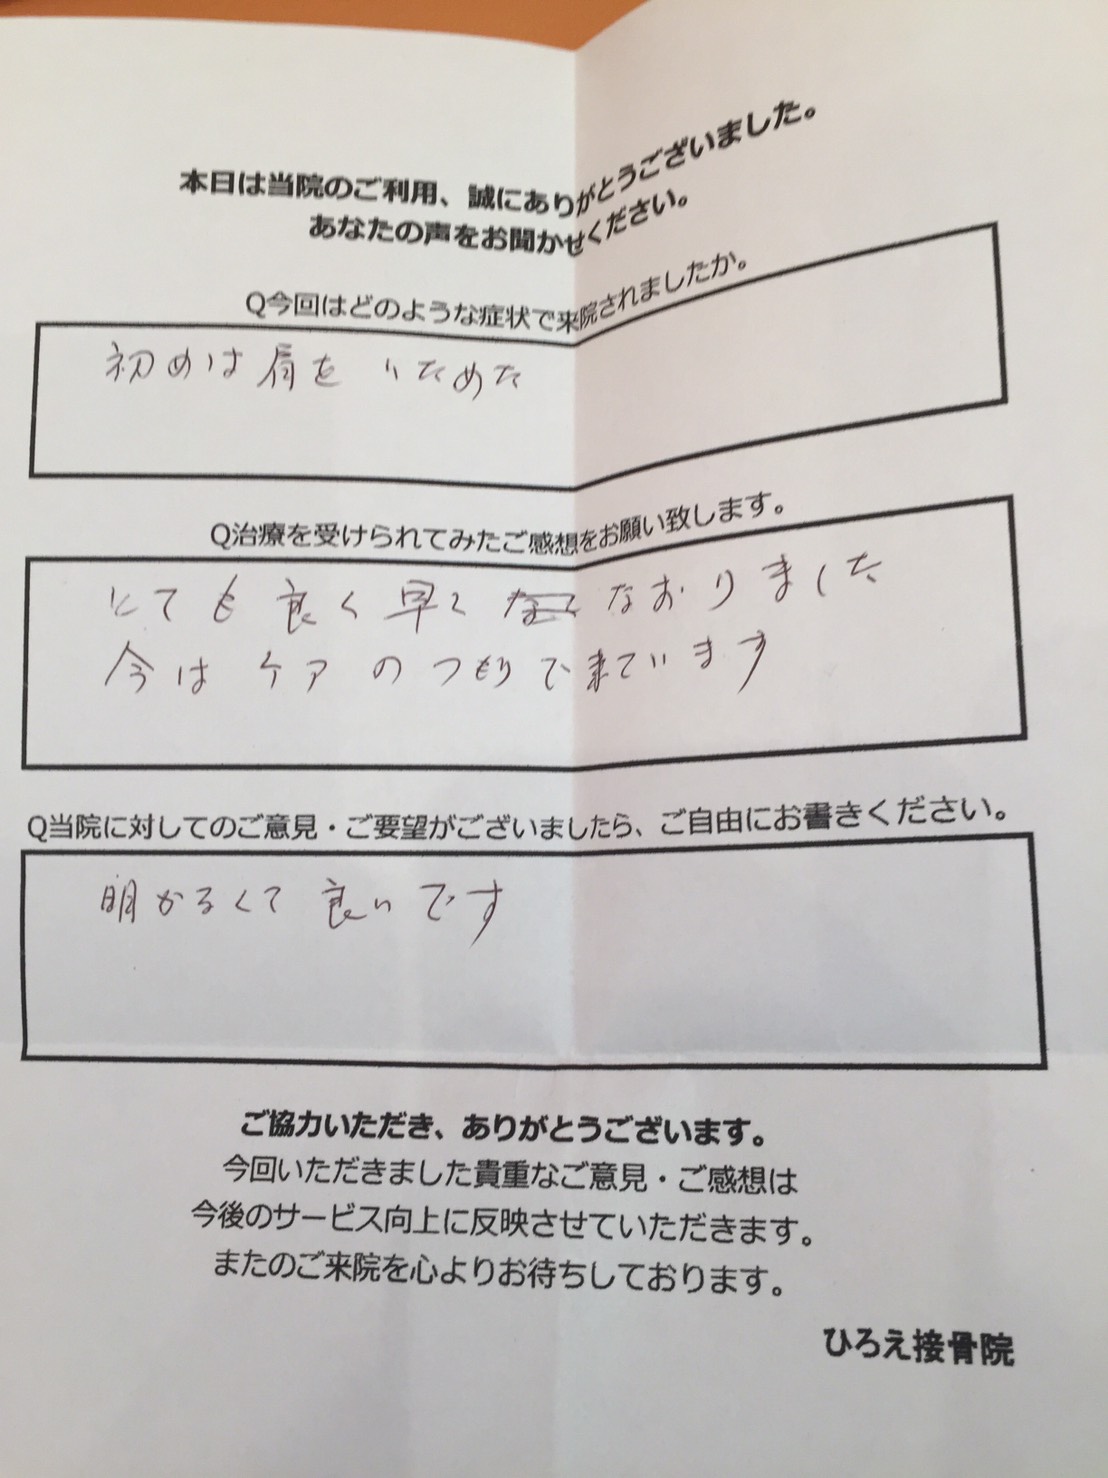 本日は当院のご利用、誠にありがとうございました。
あなたの声をお聞かせください。
Q今回はどのような症状で来院されましたか。
初めは肩をいためた
Q治療を受けられてみたご感想をお願い致します。
とても良く早く なおりました
今は ケア の つもりで来ています
Q当院に対してのご意見・ご要望がございましたら、ご自由にお書きください。
明かるくて 良いです
ご協力いただき、ありがとうございます。
今回いただきました貴重なご意見・ご感想は
今後のサービス向上に反映させていただきます。
またのご来院を心よりお待ちしております。
ひろえ接骨院